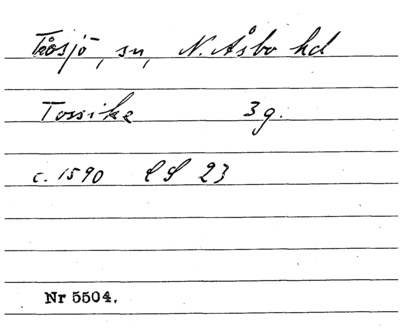 Tåsjö, sn, N. Åsbo hd
Tossike 3 g.
c. 1590 LS 23
Nr 5504.